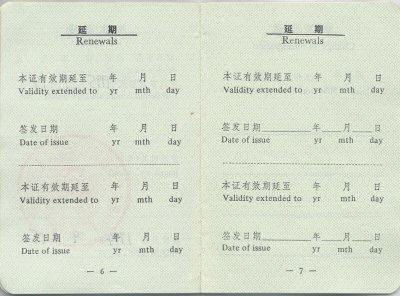 延 期
Renewals
本证有效期延至 年 月 日
Validity extended to yr mth day
签发日期 年 月 日
Date of issue yr mth day
本证有效期延至 年 月 日
Validity extended to yr mth day
签发日期 年 月 日
Date of issue yr mth day
— 6 —
延 期
Renewals
本证有效期延至 年 月 日
Validity extended to yr mth day
签发日期______年______月______日
Date of issue yr mth day
本证有效期延至 年 月 日
Validity extended to yr mth day
签发日期______年______月______日
Date of issue yr mth day
— 7 —